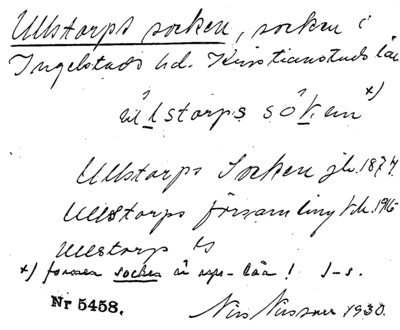 Ullstorps socken, socken i
Ingelstads hd. Kristianstads län
ulstorps soken x)
Ullstorps Socken jb. 1877.
Ullstorps församling kk. 1915
Ullstorp
x) formen socken är rspr-lån! J-s.
Nr 5458.
Nils Nilsson 1930.